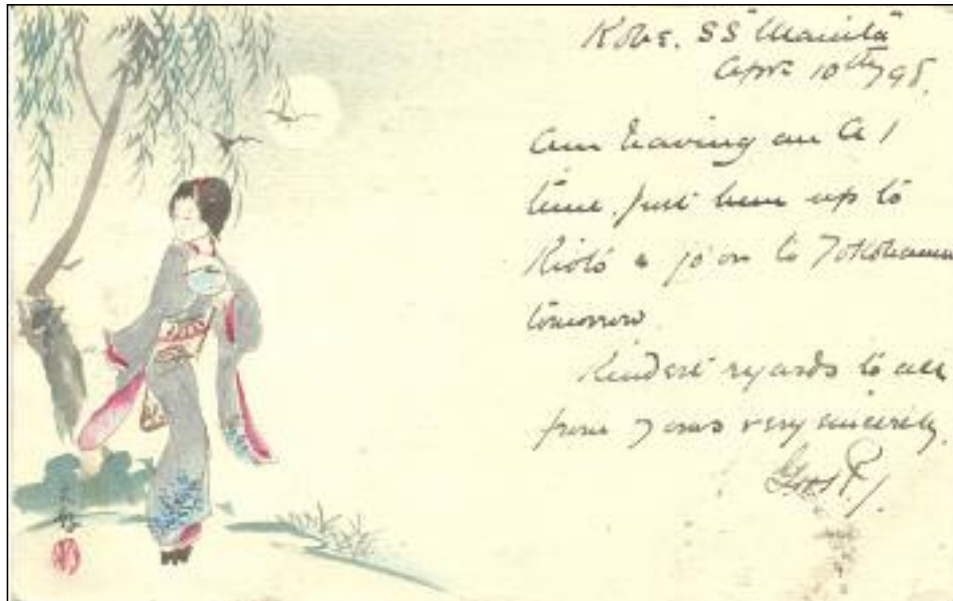 Kobe. SS "Manila"
Apr 10th 98.
Am having an A 1
time. Just been up to
Kioto & go on to Yokohama
tomorrow.
Kindest regards to all
from yours very sincerely,